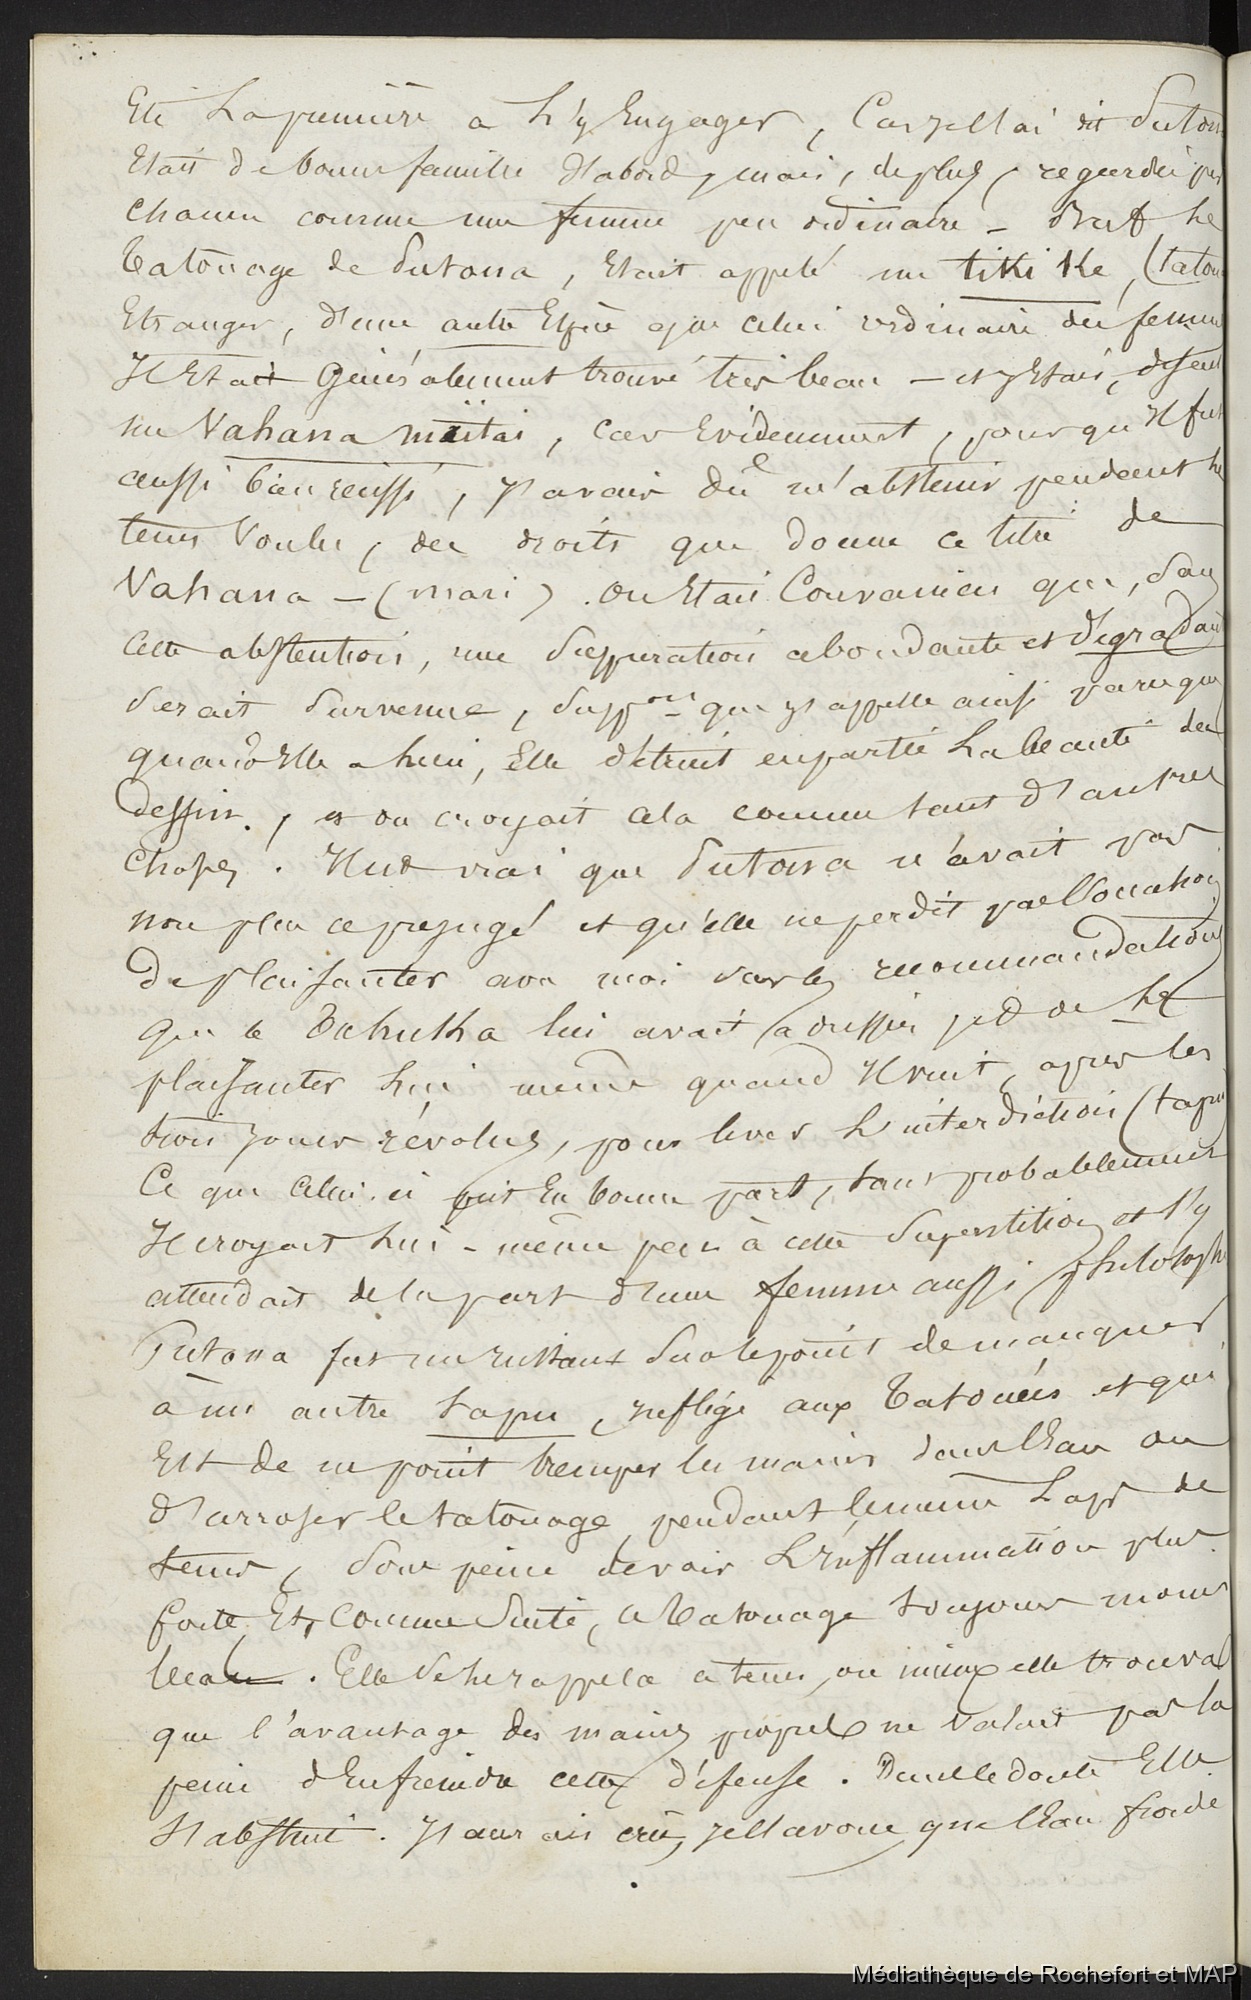 Eté La première a L'y Engager, Car jellai dit Putona
Etait de bonne famille d'abord, mais, de plus, regardée par
Chacun comme une femme peu ordinaire - Bref Le
Tatouage de Putona, Etait appelé un tiki Ke, (tatou
Etranger, d'une autre Espèce que celui ordinaire des femmes
Il Etait Généralement trouvé très beau - et j'Etais,
un Vahana maitai, car Evidemment, pour qu'Il fut
aussi bien reussi, J'avais dû m'abstenir pendant le
tems Voulu, des droits que donne ce titre de
Vahana - (mari). On Etait Convaincu que, Sans
Cette abstention, une Suppuration abondante et dégradante
Serait Survenue, Supp.on que j'appelle ainsi parceque
quand Elle a lieu, Elle détruit en partie La beauté des
dessins, et on croyait cela comme tant d'autres
Choses. Il est vrai que Putona n'avait pas
non plus ce préjugé et qu'elle ne perdit pas l'occasion
de plaisanter avec moi sur les recommandations
que le Tahuka lui avait adressées et de Le
plaisanter Lui même quand Il vint, après les
trois Jours révolus, pour lever L'interdiction (tapu
Ce que Celui-ci prit En bonne part, tant probablement
Il croyait Lui-même peu à cette Superstition et s'y
attendait de la part d'une femme aussi philosophe
Putona fut un Instant Sur le point de manquer
à un autre tapu, Infligé aux Tatoués et qui
Est de ne point tremper les mains dans l'Eau ou
d'arroser le tatouage, pendant le même Laps de
tems, Sous peine de voir L'Inflammation plus
forte, Et, Comme Suite, le Tatouage toujours moins
beau. Elle Se le rappela a tems, ou mieux elle trouva
que l'avantage des mains propres ne Valait pas la
peine d'Enfreindre cette défense. Dans le doute Elle
S'abstint. J'aurais crû, Je l'avoue que l'Eau froide